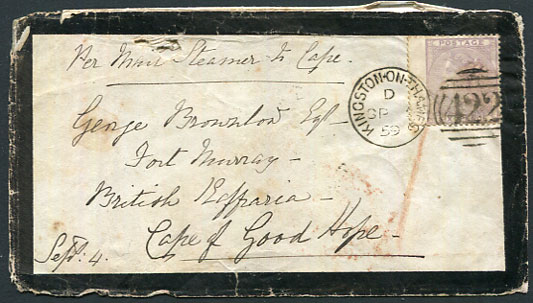 Per Mail Steamer to Cape.
George Brownlow Esqr
Fort Murray -
British Kaffraria -
Cape of Good Hope -
Sept. 4.
KINGSTON-ON-THAMES
D
SP
59
POSTAGE
422